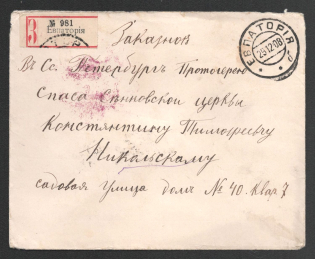 № 981
Евпаторія
З
Заказное
ЕВПАТОРІЯ
29.12.08
Въ Сс. Петербургъ Протоіерею
Спаса Сѣнновской церкви
Константину Тимофеевичу
Никольскому
садовая улица домъ № 40. Квар 7